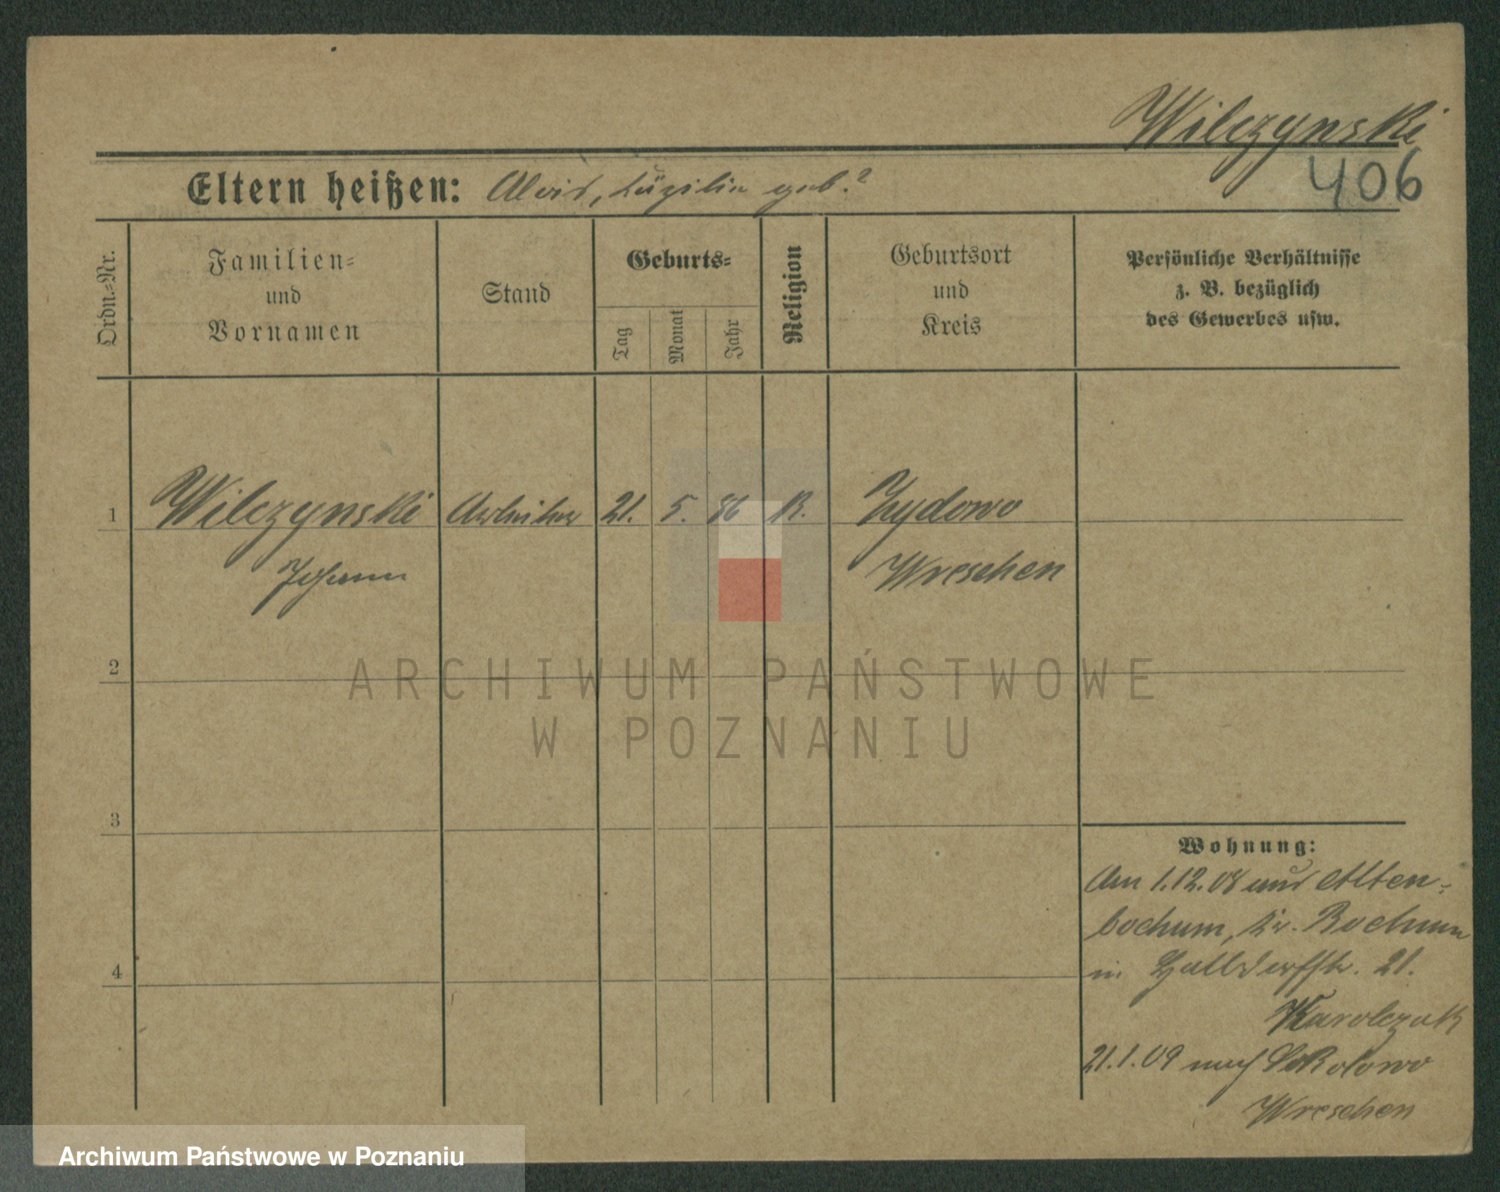 Wilczynski
406
Eltern heißen: Alois, Cäzilie geb.?
Ordn.=Nr.
Familien=
und
Vornamen
Stand
Geburts=
Tag
Monat
Jahr
Religion
Geburtsort
und
Kreis
Persönliche Verhältnisse
z. B. bezüglich
des Gewerbes usw.
1 Wilczynski Arbeiter 21. 5. 86 K. Zydowo
Johann Wreschen
ARCHIWUM PAŃSTWOWE
W POZNANIU
2
3
4
Wohnung:
Am 1.12.08 aus Alten-
bochum, Kr. Bochum
in 21.
Karolczak
21.1.09 nach Sokolowo
Wreschen
Archiwum Państwowe w Poznaniu